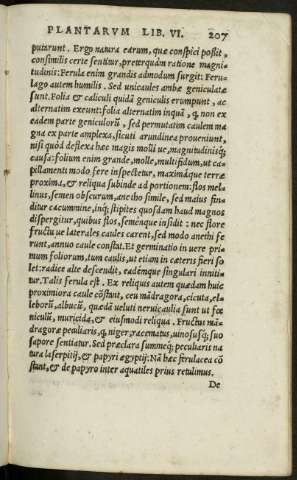 PLANTARVM LIB. VI. 207
puixrunt. Ergo natura earum, quæ conspici possit,
consimilis certe sentitur, præterquàm ratione magni-
tudinis: Ferula enim grandis admodum surgit: Feru-
lago autem humilis. Sed unicaules ambæ geniculatæ
sunt. Folia & caliculi quidã geniculis erumpunt, ac
alternatim exeunt: folia alternatim inquã, q, non ex
eadem parte geniculorũ, sed permutatim caulem ma
gna ex parte amplexa, sicuti arundinea proueniunt,
nisi quòd deflexa hæc magis molli ue, magnitudinisq;
causa: folium enim grande, molle, multifidum, ut ca-
pillamenti modo fere inspectetur, maximáque terræ
proxima, & reliqua subinde ad portionem: flos mel-
linus, semen obscurum, anetho simile, sed maius fin-
ditur cacumine, inq; stipites quosdam haud magnos
dispergitur, quibus flos, seménque insidit: nec flore
fructiu ue laterales caules carent, sed modo anethi fe
runt, annuo caule constat. Et germinatio in uere pri-
mum foliorum, tum caulis, ut etiam in cæteris fieri so
let: radice alte descendit, eadémque singulari inniti-
tur. Talis ferula est. Ex reliquis autem quædam huic
proximiora caule cõstant, ceu mãdragora, cicuta, el-
leborũ, albucũ, quædã ueluti neruicaulia sunt ut fœ
niculũ, muricida, & eiusmodi reliqua. Fructus mã-
dragoræ peculiaris, q, niger, racematus, uinosusq; suo
sapore sentiatur. Sed præclara summeq; peculiaris na
tura laserpitij, & papyri ægyptij: Nã hæc ferulacea cõ
stant, & de papyro inter aquatiles prius retulimus.
De